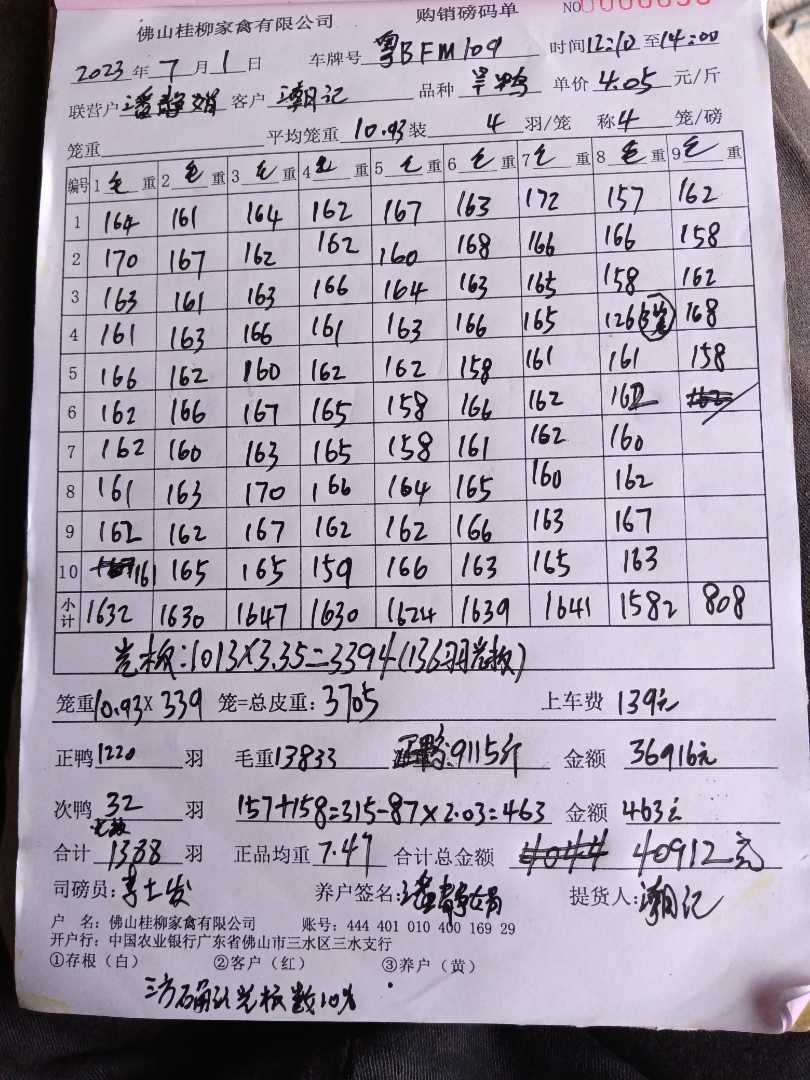 佛山桂柳家禽有限公司 购销磅码单 NO
2023年7月1日 车牌号 粤BFM109 时间12:10至14:00
联营户 潘静娟 客户 潮记 品种 旱鸭 单价 4.05 元/斤
笼重 平均笼重 10.93 装 4 羽/笼 称 4 笼/磅
编号 1 毛 重 2 毛 重 3 毛 重 4 毛 重 5 毛 重 6 毛 重 7 毛 重 8 毛 重 9 毛 重
1 164 161 164 162 167 163 172 157 162
2 170 167 162 162 160 168 166 166 158
3 163 161 163 166 164 163 165 158 162
4 161 163 166 161 163 166 165 126 168
5 166 162 160 162 162 158 161 161 158
6 162 166 167 165 158 166 162 162
7 162 160 163 165 158 161 162 160
8 161 163 170 166 164 165 160 162
9 162 162 167 162 162 166 163 167
10 161 165 165 159 166 163 165 163
小计 1632 1630 1647 1630 1624 1639 1641 1582 808
光板:1013×3.35=3394(136羽光板)
笼重10.93×339 笼=总皮重:3705 上车费 139元
正鸭1220 羽 毛重13833 正鸭:9115斤 金额 36916元
次鸭 32 羽 157+158=315-87×2.03=463 金额 463元
合计 1388 羽 正品均重 7.47 合计总金额 40912元
司磅员: 养户签名:潘静娟 提货人:潮记
户 名:佛山桂柳家禽有限公司 账号:444 401 010 400 169 29
开户行:中国农业银行广东省佛山市三水区三水支行
①存根(白) ②客户(红) ③养户(黄)
三方确认光板数10%